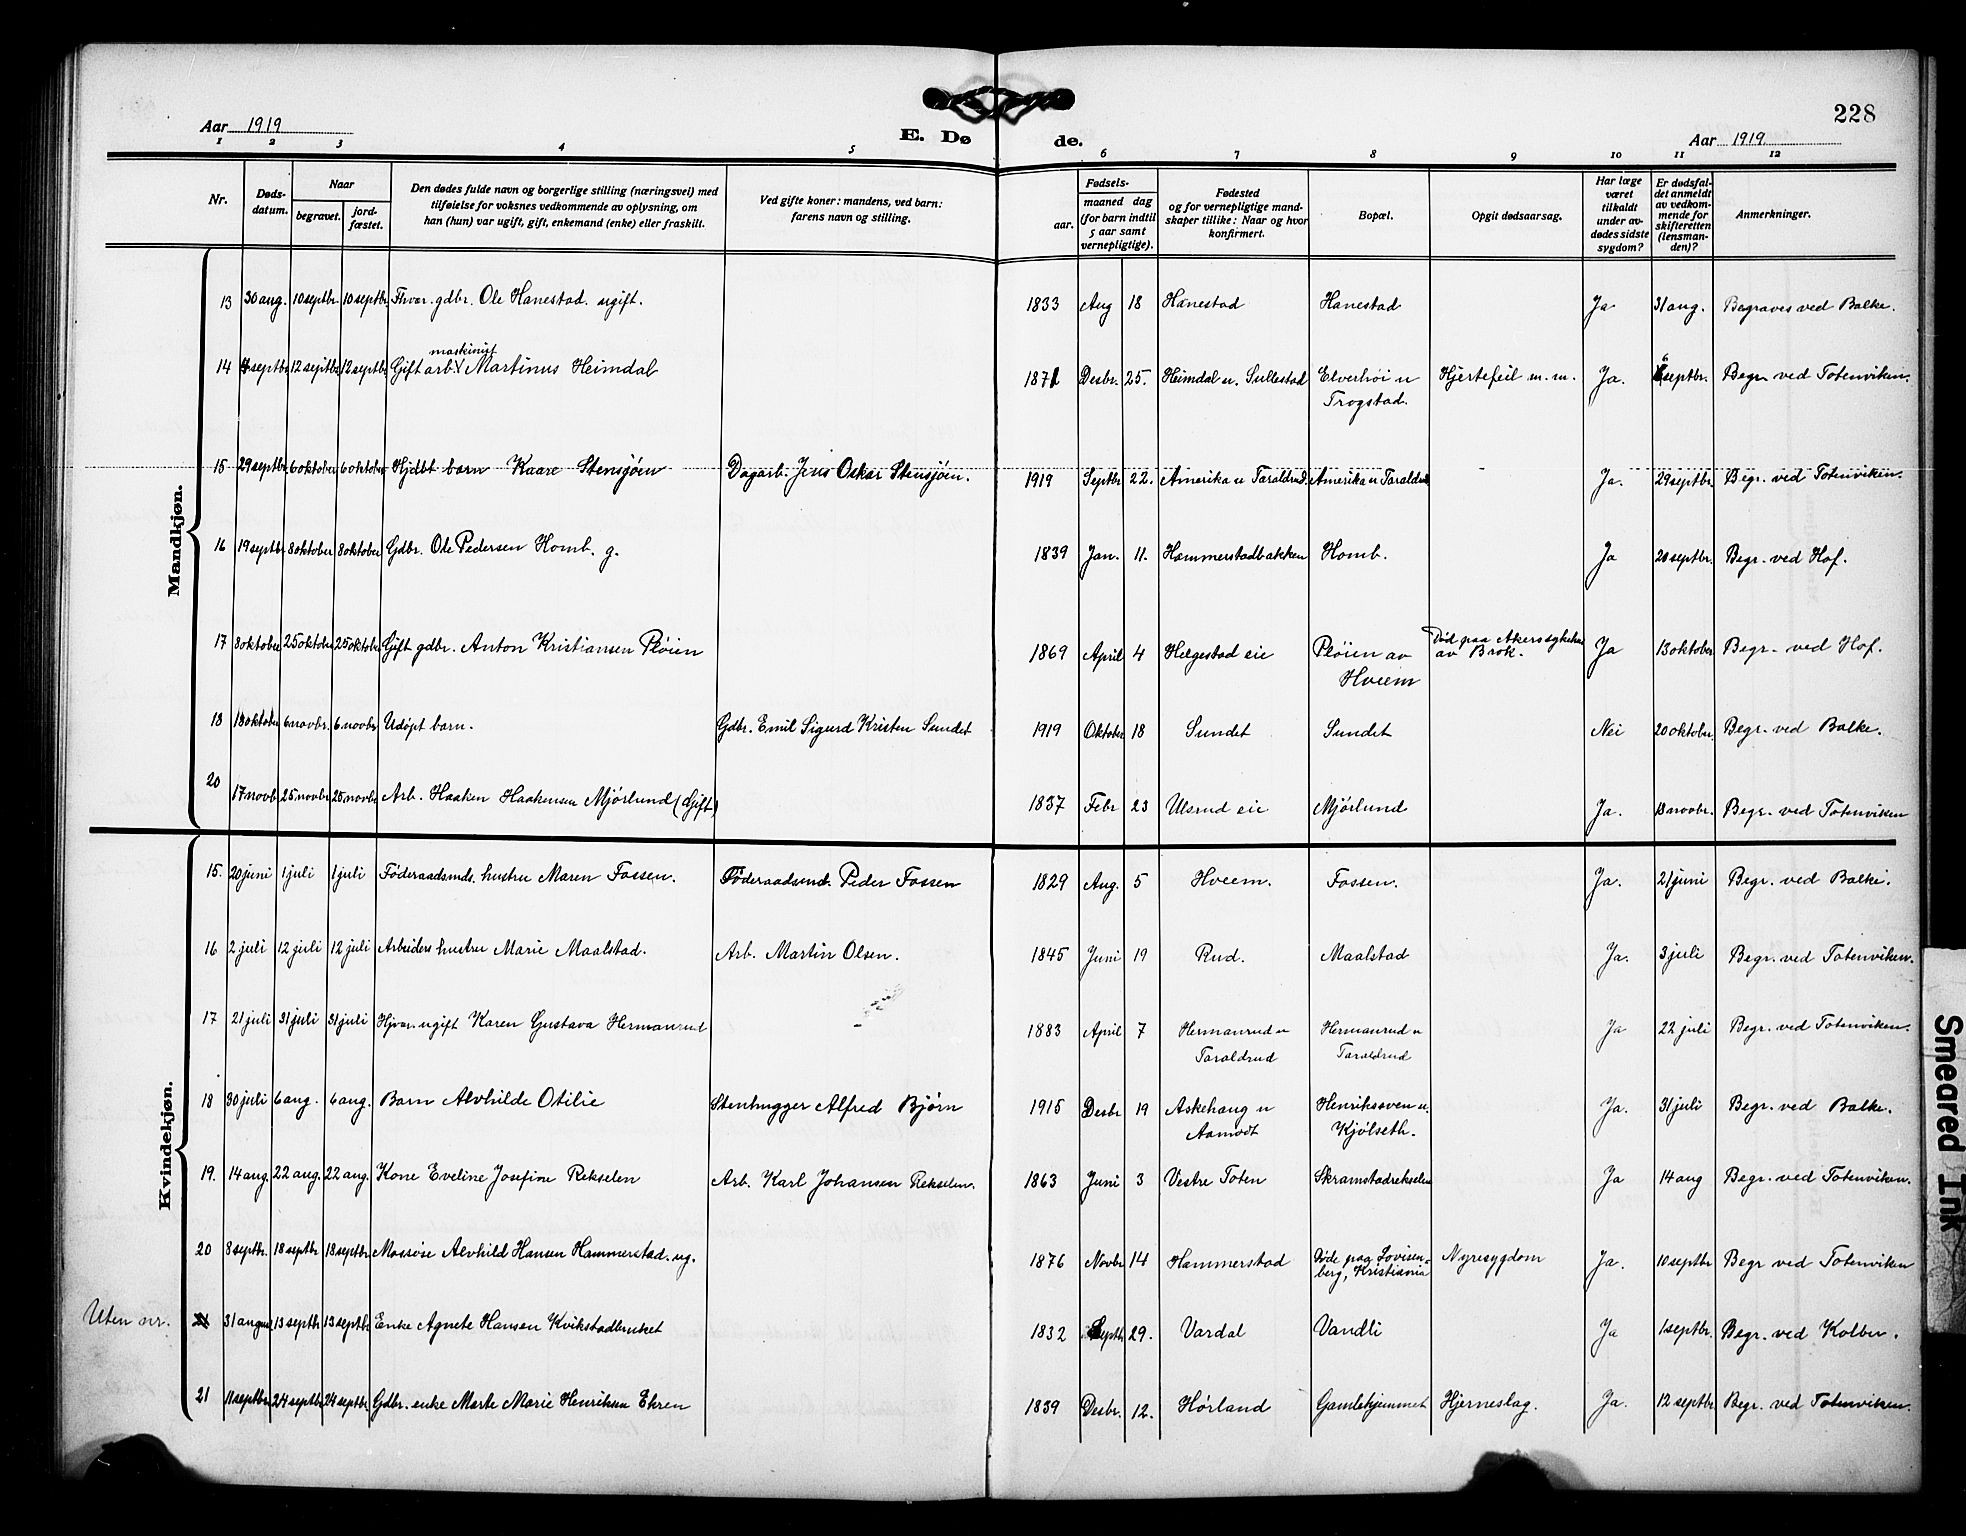 228
Aar 1919 E. Dø de. Aar 1919
1 2 3 4 5 6 7 8 9 10 11 12
Nr.
Døds-
datum.
Naar
begravet.
jord-
fæstet.
Den dødes fulde navn og borgerlige stilling (næringsvei) med
tilføielse for voksnes vedkommende av oplysning, om
han (hun) var ugift, gift, enkemand (enke) eller fraskilt.
Ved gifte koner: mandens, ved barn:
farens navn og stilling.
Fødsels-
aar.
maaned dag
(for barn indtil
5 aar samt
vernepligtige).
Fødested
og for vernepligtige mand-
skaper tillike: Naar og hvor
konfirmert.
Bopæl.
Opgit dødsaarsag.
Har læge
været
tilkaldt
under av-
dødes sidste
sygdom?
Er dødsfal-
det anmeldt
av vedkom-
mende for
skifteretten
(lensman-
den)?
Anmerkninger.
Mandkjøn.
13 30 aug. 10 septbr. 10 septbr. Fhvr. gdbr. Ole Hanestad. ugift. 1833 Aug 18 Hanestad Hanestad Ja 31 aug. Begraves ved Balke.
maskinist
14 4 septbr. 12 septbr. 12 septbr. Gift arb. Martinus Heimdal 1871 Desbr. 25. Heimdal u. Sullestad Elverhøi u Hjertefeil m.m. Ja. 6 septbr. Begr. ved Totenviken.
Trogstad.
15 29 septbr. 6 oktober 6 oktober Hjdbt barn Kaare Stensjøen Dagarb. Jens Oskar Stensjøen. 1919 Septbr 22. Amerika u Taraldrud. Amerika u Taraldrud Ja. 29 septbr. Begr. ved Totenviken.
16 19 septbr. 8 oktober 8 oktober Gdbr. Ole Pedersen Homb. g. 1839 Jan. 11. Hammerstadbakken Homb. Ja 20 septbr. Begr. ved Hof.
17 8 oktober 25 oktober 25 oktober Gift gdbr. Anton Kristiansen Pløien 1869 April 4 Helgestad eie Pløien av Død paa Akers sykehus Ja 13 oktober Begr. ved Hof.
Hveem av Brok.
18 18 oktober 6 novbr. 6 novbr. Udøpt barn. Gdbr. Emil Sigurd Kristen Sundet 1919 Oktober 18 Sundet Sundet Nei 20 oktober. Begr. ved Balke.
20 17 novb 25 novbr 25 novbr Arb. Haaken Haakensen Mjørlund (Gift) 1837 Febr 23 Ulsrud eie Mjørlund Ja. 18 novbr. Begr. ved Totenviken
Kvindekjøn.
15. 20 juni 1 juli 1 juli Føderaadsmds. hustru Maren Fossen. Føderaadsmd. Peder Fossen 1829 Aug. 5 Hveem. Fossen. Ja. 21 juni Begr. ved Balke.
16 2 juli 12 juli 12 juli Arbeiders hustru Marie Maalstad. Arb. Martin Olsen. 1845 Juni 19 Rud. Maalstad Ja. 3 juli Begr. ved Totenviken.
17 21 juli 31 juli 31 juli Hjvær. ugift Karen Gustava Hermanrud 1883 April 7 Hermanrud u Hermanrud u Ja 22 juli Begr. ved Totenviken.
Taraldrud Taraldrud
18 30 juli 6 aug. 6 aug. Barn Alvhilde Otilie Stenhugger Alfred Bjørn 1915 Desbr 19 Askehaug u Henriksoven u. Ja. 31 juli Begr. ved Balke.
Aamodt Kjølseth.
19. 14 aug. 22 aug. 22 aug. Kone Eveline Josefine Rekselen Arb. Karl Johansen Rekselen. 1863 Juni 3 Vestre Toten Skramstadrekselen Ja 14 aug Begr. ved Totenviken.
20 8 septbr. 18 septbr 18 septbr Massøse Alvhild Hansen Hammerstad. ug. 1876 Novbr 14 Hammerstad Døde paa Lovisen- Nyresygdom Ja. 10 septbr Begr ved Totenviken
berg, Kristiania
Uten nr. 21 31 august 13 septbr 13 septbr Enke Agnete Hansen Kvikstadbruket 1832 Septb. 29. Vardal Vandli Ja 1 septbr. Begr. ved Kolbu.
21 11 septbr. 24 septbr 24 septbr. Gdbr. enke Marte Marie Henriksen Ekren 1839 Desbr. 12. Hørland Gamlehjemmet Hjerneslag. Ja. 12 septbr Begr. ved Totenviken.
Smeared Ink